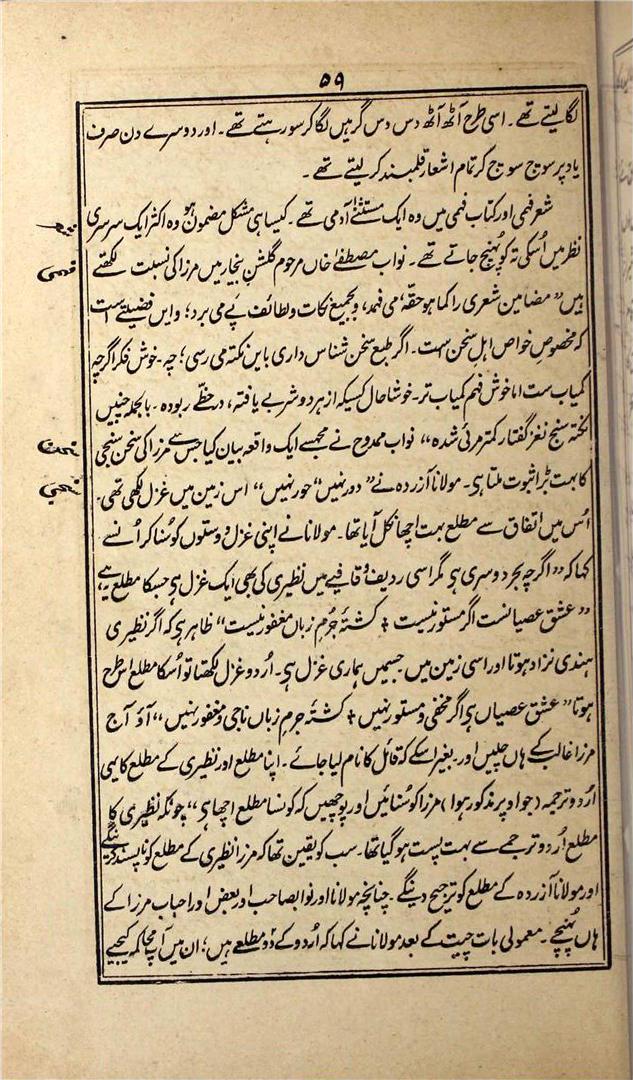 ۵۹
لگا لیتے تھے ۔ اسی طرح آٹھ آٹھ دس دس گرہیں لگا کر سو رہتے تھے ۔ اور دوسرے دن صرف
یاد پر سوچ سوچ کر تمام اشعار قلمبند کر لیتے تھے ۔
شعر فہمی اور کتاب فہمی میں وہ ایک مستثنےٰ آدمی تھے ۔ کیسا ہی مشکل مضمون ہو وہ اکثر ایک سرسری
نظر میں اُسکی تہ کو پُہنچ جاتے تھے ۔ نواب مصطفےٰ خاں مرحوم گلشنِ بیخار میں مرزا کی نسبت لکھتے
فہمی
ہیں ”مضامین شعری را کما ہو حقّہٗ می فہمد، و بجمیع نکات و لطائف پے می برد؛ و این فضیلتے است
کہ مخصوصِ خواص اہلِ سخن ست ۔ اگر طبعِ سخن شناس داری باین نکتہ می رسی؛ چہ ۔ خوش فکر اگرچہ
کمیاب ست اما خوش فہم کمیاب تر ۔ خوشا حال کسیکہ از ہر دو شربے یافتہ، و حظّے ربودہ ۔ بالجملہ چنیں
نکتہ سنج نغز گفتار کمتر مرئی شدہ“ نواب ممدوح نے مجسے ایک واقعہ بیان کیا جس سے مرزا کی سخن سنجی
سخن
کا بہت بڑا ثبوت ملتا ہی ۔ مولانا آزردہ نے ”دور نہیں“ ”حور نہیں“ اس زمین میں غزل لکھی تھی ۔
سنجی
اُس میں اتفاق سے مطلع بہت اچھا نکل آیا تھا ۔ مولانا نے اپنی غزل دوستوں کو سُنا کر اُنسے
کہا کہ ”اگرچہ بحر دوسری ہی مگر اسی ردیف و قافیے میں نظیری کی بھی ایک غزل ہی جسکا مطلع یہ ہے
”عشق عصیانست اگر مستور نیست ؛ کشتۂ جُرمِ زباں مغفور نیست“ ظاہر ہی کہ اگر نظیری
ہندی نژاد ہوتا اور اسی زمین میں جسمیں ہماری غزل ہی ۔ اُردو غزل لکھتا تو اُسکا مطلع اس طرح
ہوتا ”عشق عصیاں ہی اگر مخفی و مستور نہیں ؛ کشتۂ جرمِ زباں ناجی و مغفور نہیں“ آؤ آج
مرزا غالب کے ہاں چلیں اور بغیر اسکے کہ قائل کا نام لیا جائے ۔ اپنا مطلع اور نظیری کے مطلع کا یہی
اُردو ترجمہ (جو اوپر مذکور ہوا) مرزا کو سُنائیں اور پوچھیں کہ کونسا مطلع اچھا ہی“ چونکہ نظیری کا
مطلع اُردو ترجمے سے بہت پست ہو گیا تھا ۔ سب کو یقین تھا کہ مرزا نظیری کے مطلع کو ناپسند کرینگے
اور مولانا آزردہ کے مطلع کو ترجیح دینگے ۔ چنانچہ مولانا اور نواب صاحب اور بعض اور احباب مرزا کے
ہاں پُہنچے ۔ معمولی بات چیت کے بعد مولانا نے کہا کہ اُردو کے دو مطلعے ہیں؛ ان میں آپ محاکمہ کیجیے